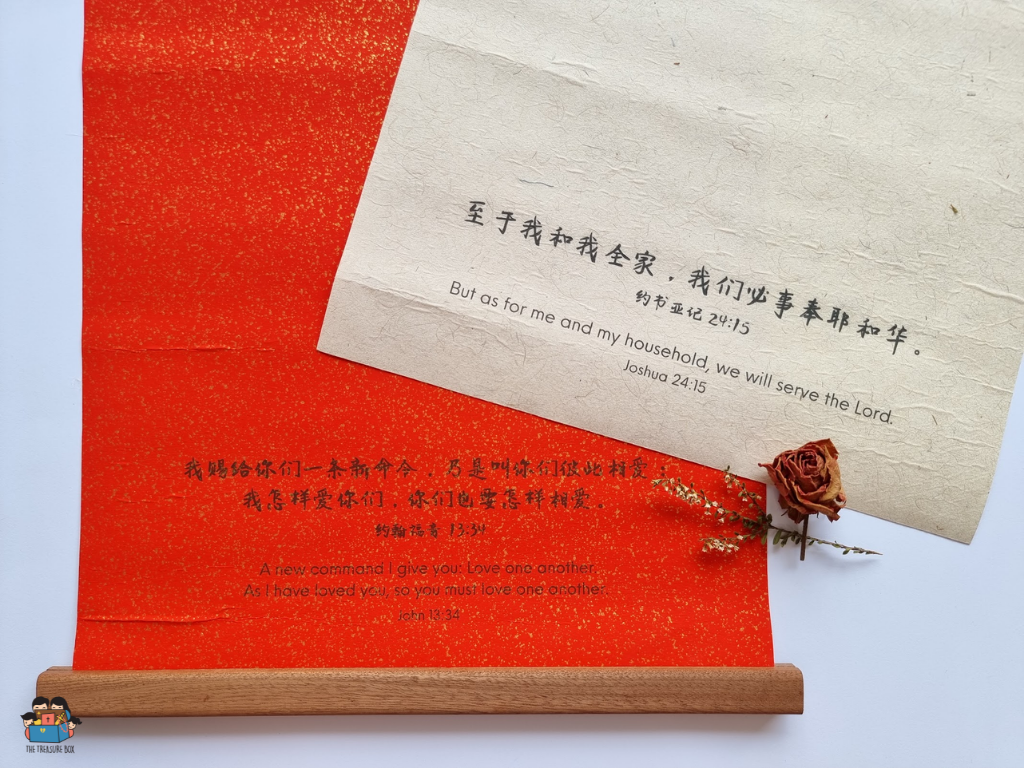 至于我和我全家，我们必事奉耶和华。
约书亚记 24:15
But as for me and my household, we will serve the Lord.
Joshua 24:15
我赐给你们一条新命令，乃是叫你们彼此相爱；
我怎样爱你们，你们也要怎样相爱。
约翰福音 13:34
A new command I give you: Love one another.
As I have loved you, so you must love one another.
John 13:34
THE TREASURE BOX